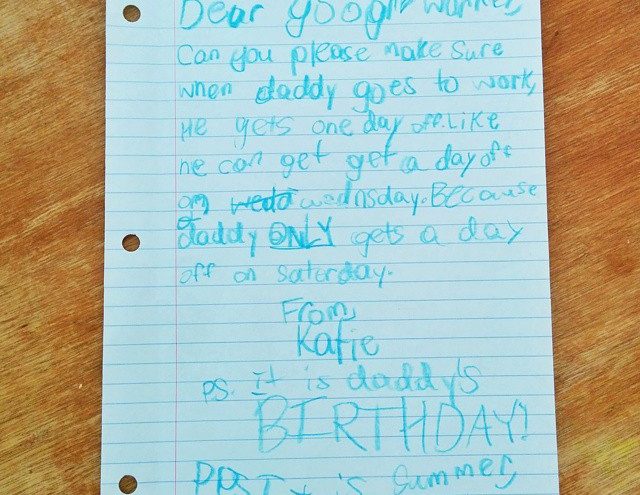 Dear google worker,
Can you please make sure
when daddy goes to work,
He gets one day off. Like
he can get get a day off
on wednsday. Because
daddy ONLY gets a day
off on saturday.
From,
Katie
P.S. It is daddy's
BIRTHDAY!
PPS It is summer,